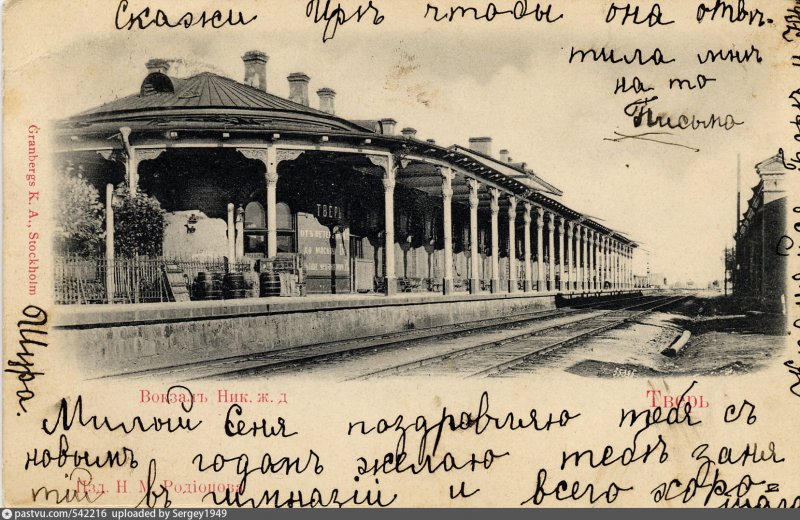 Скажи Ирѣ чтобы она отвѣ-
тила мнѣ
на то
Письма
Granbergs K. A., Stockholm
ТВЕРЬ
Шура.
Вокзалъ Ник. ж. д
Тверь
Милый Сеня поздравляю тебя съ
новымъ годомъ желаю тебѣ заня
тій въ гимназіи и всего хоро=
Изд. Н. М. Родіонова
шаго
pastvu.com/542216 uploaded by Sergey1949